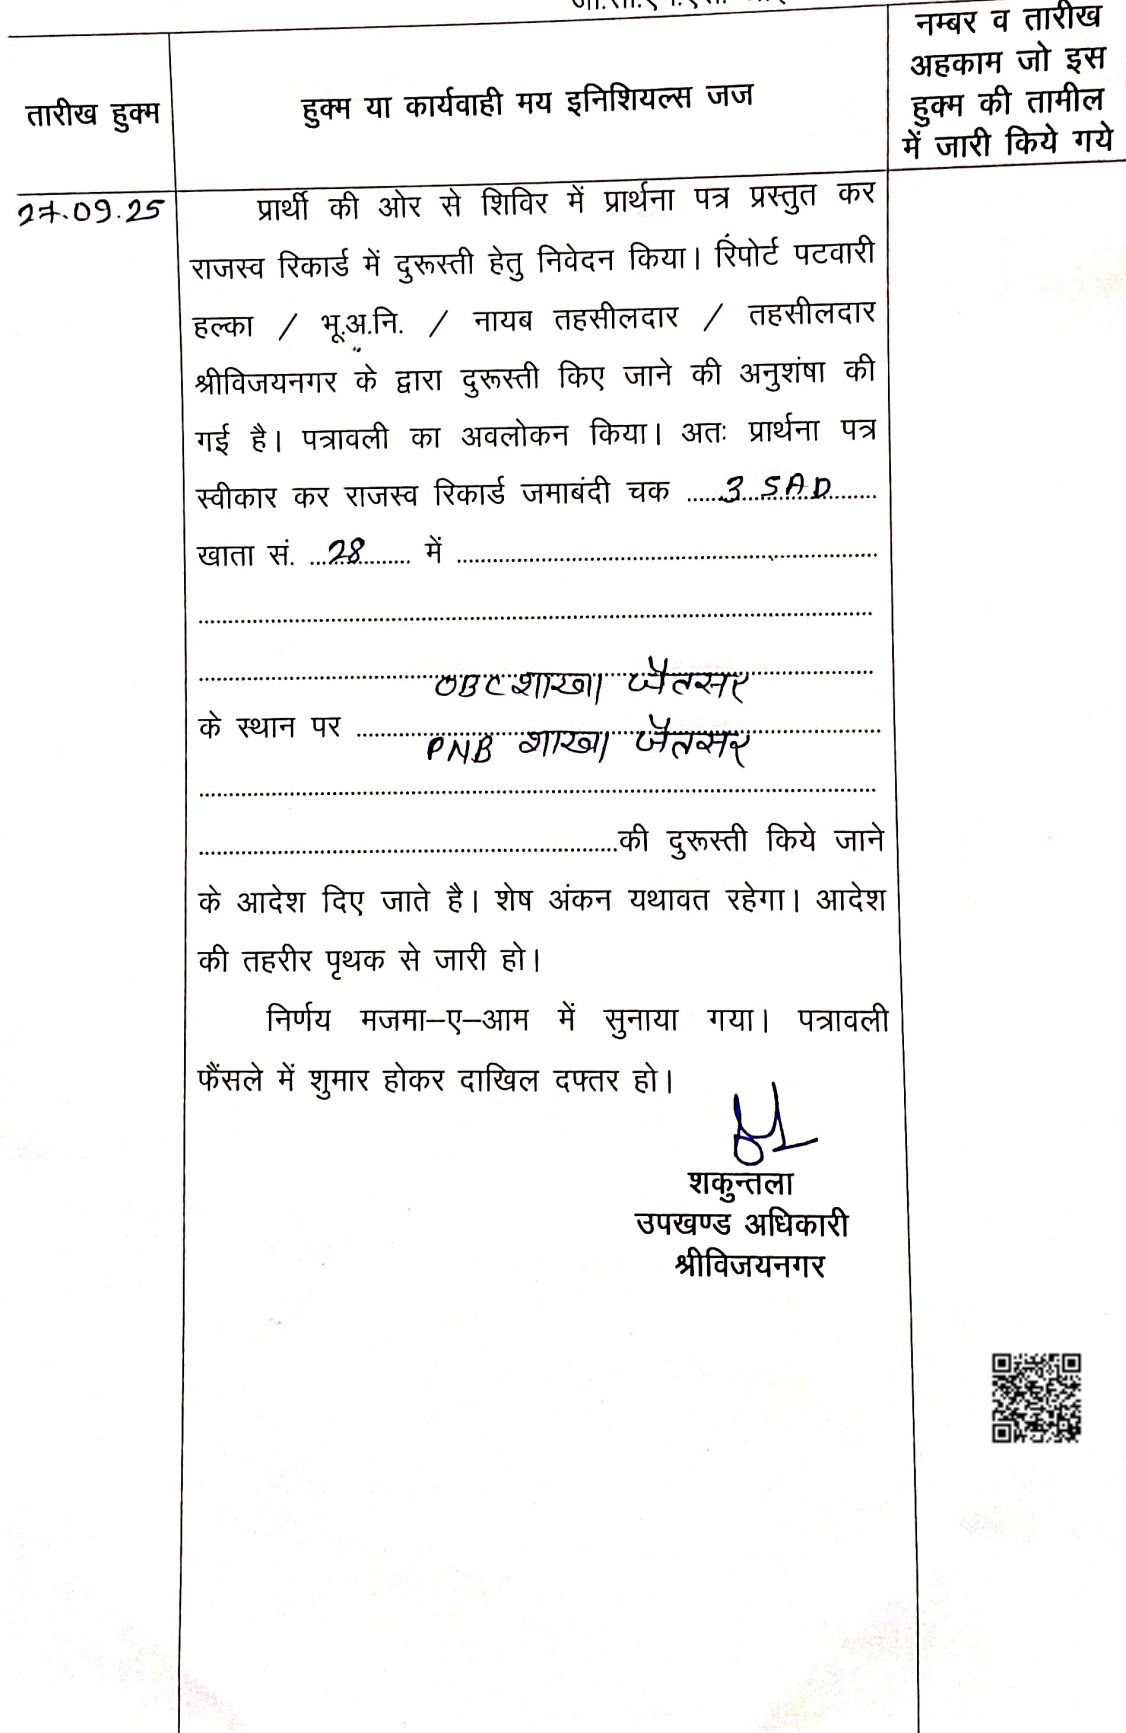 नम्बर व तारीख
अहकाम जो इस
हुक्म की तामील
में जारी किये गये
तारीख हुक्म
हुक्म या कार्यवाही मय इनिशियल्स जज
27.09.25
प्रार्थी की ओर से शिविर में प्रार्थना पत्र प्रस्तुत कर
राजस्व रिकार्ड में दुरूस्ती हेतु निवेदन किया। रिपोर्ट पटवारी
हल्का / भू.अ.नि. / नायब तहसीलदार / तहसीलदार
श्रीविजयनगर के द्वारा दुरूस्ती किए जाने की अनुशंषा की
गई है। पत्रावली का अवलोकन किया। अतः प्रार्थना पत्र
स्वीकार कर राजस्व रिकार्ड जमाबंदी चक ......3 SAD......
खाता सं. ...28...... में ......
OBC शाखा जैतसर
के स्थान पर ......
PNB शाखा जैतसर
......की दुरूस्ती किये जाने
के आदेश दिए जाते है। शेष अंकन यथावत रहेगा। आदेश
की तहरीर पृथक से जारी हो।
निर्णय मजमा–ए–आम में सुनाया गया। पत्रावली
फैंसले में शुमार होकर दाखिल दफ्तर हो।
शकुन्तला
उपखण्ड अधिकारी
श्रीविजयनगर